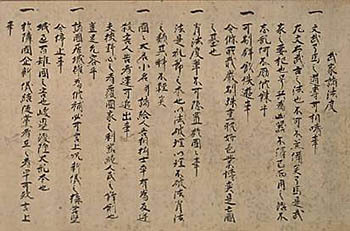 武家諸法度
一 文武弓馬之道専可相嗜事
左文右武古之法也不可不兼備矣弓馬是武
家之要枢也号兵為凶器不得已而用之治不
忘乱何不励修錬乎
一 可制群飲佚遊事
令條所載厳制殊重耽好色業博奕是亡國
之基也
一 背法度輩不可隠置於國々事
法是礼節之本也以法破理以理不破法背法
之類其科不軽矣
一 國々大名小名并諸給人各相抱士卒有為反逆
殺害人告者速可追出事
夫挟野心之者為覆國家之利器絶人民之鋒釼也
豈足允容乎
一 諸國居城雖為修補必可言上況新儀之構営堅
令停止事
城過百雉國之害也峻塁浚隍大乱之本也
一 於隣國企新儀結徒黨者有之者早可致言上